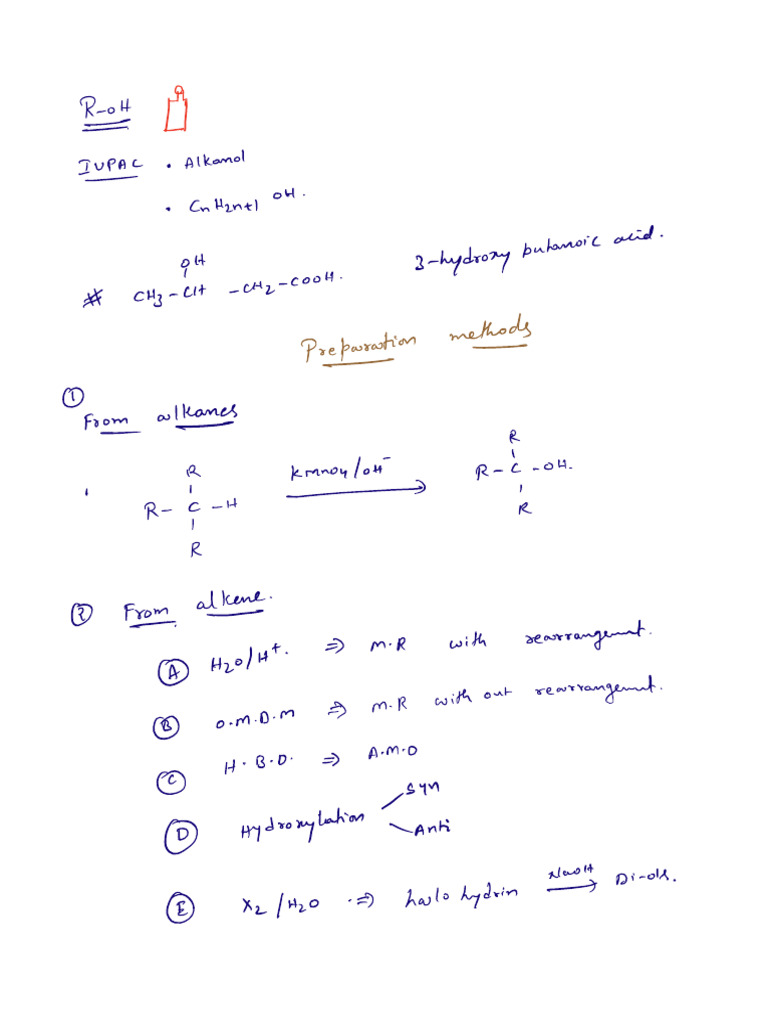 R-OH
IUPAC • Alkanol
• CnH2n+1 OH.
OH
# CH3-CH-CH2-COOH. 3-hydroxy butanoic acid.
Preparation methods
① From alkanes
R R
R-C-H KMnO4/OH⁻ R-C-OH.
R R
② From alkene.
Ⓐ H2O/H⁺. ⇒ M.R with rearrangement.
Ⓑ O.M.D.M ⇒ M.R with out rearrangement.
Ⓒ H.B.O. ⇒ A.M.O
Ⓓ Hydroxylation Syn
Anti
Ⓔ X2/H2O ⇒ halo hydrin NaOH → Di-ols.